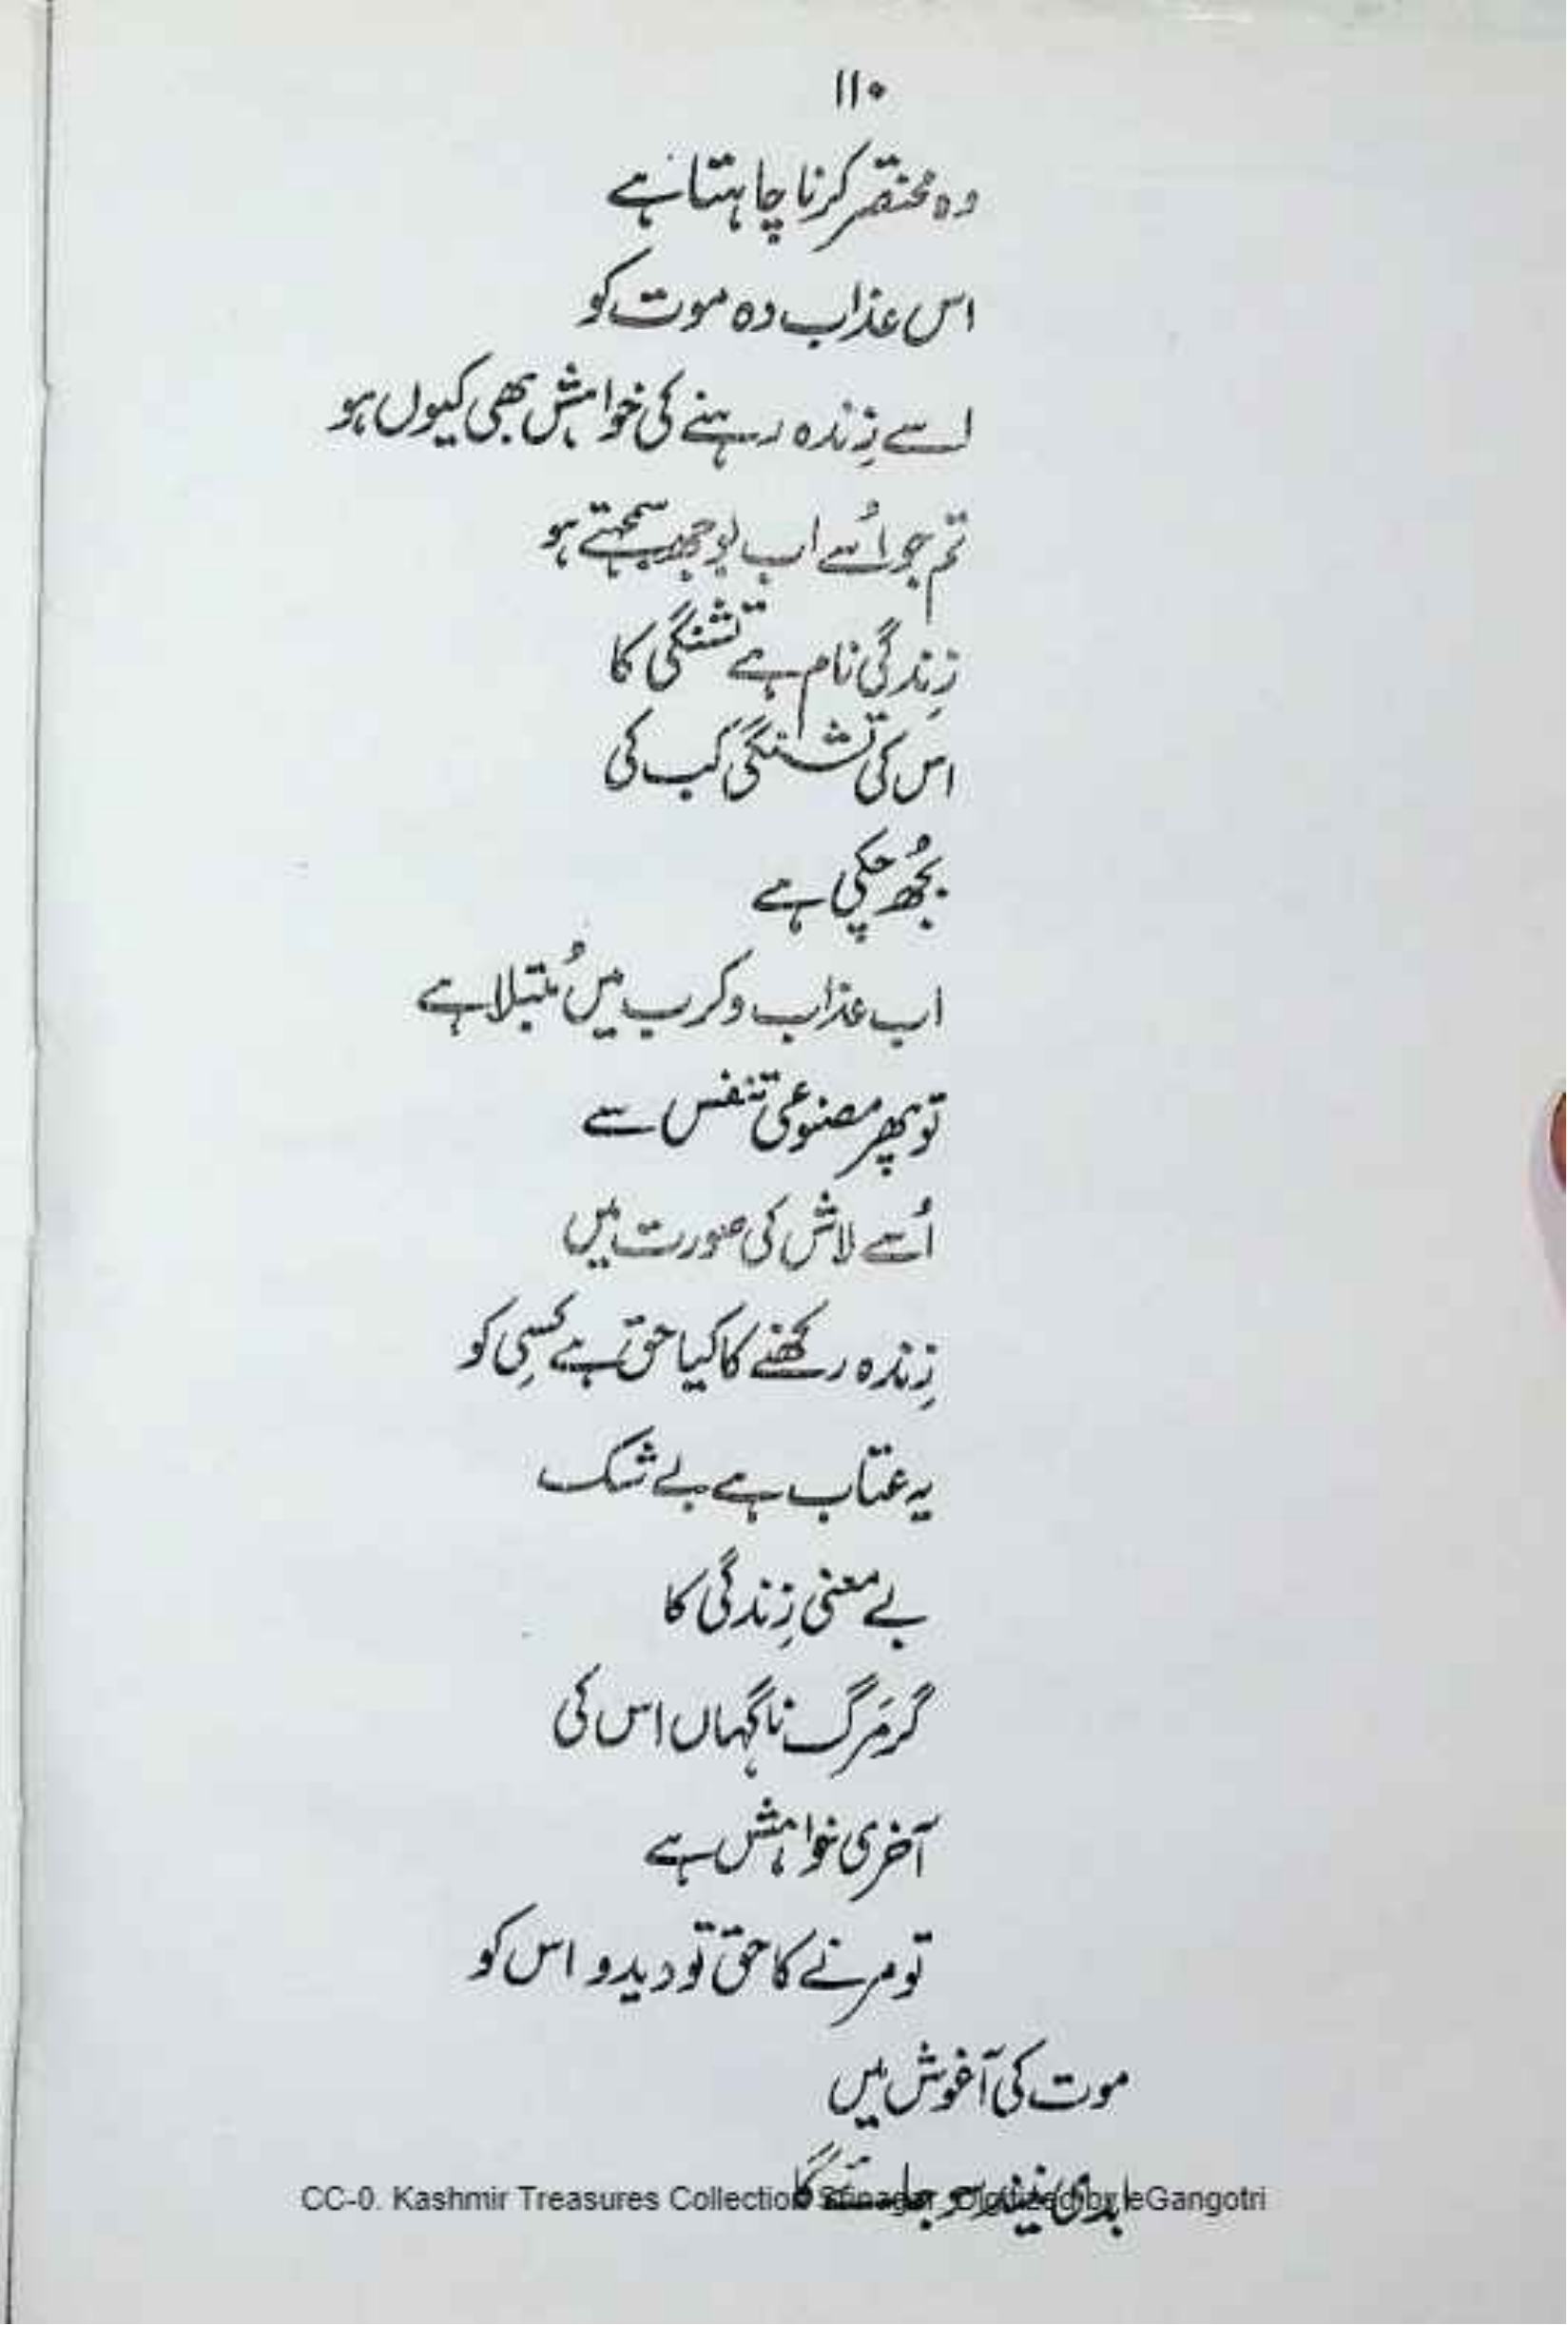 ۱۱۰
وہ مختصر کرنا چاہتا ہے
اس عذاب دہ موت کو
اسے زِندہ رہنے کی خواہش بھی کیوں ہو
تم جو اُسے اب بوجھ سمجھتے ہو
زِندگی نام ہے تشنگی کا
اس کی تشنگی کب کی
بُجھ چکی ہے
اب عذاب و کرب میں مُبتلا ہے
تو پھر مصنوعی تنفس سے
اُسے لاش کی صورت میں
زِندہ رکھنے کا کیا حق ہے کسِی کو
یہ عتاب ہے بے شک
بے معنی زِندگی کا
گر مَرگ ناگہاں اس کی
آخری خواہش ہے
تو مرنے کا حق تو دیدو اس کو
موت کی آغوش میں
ابدی نیند سو جائے گا
CC-0. Kashmir Treasures Collection Srinagar. Digitized by eGangotri